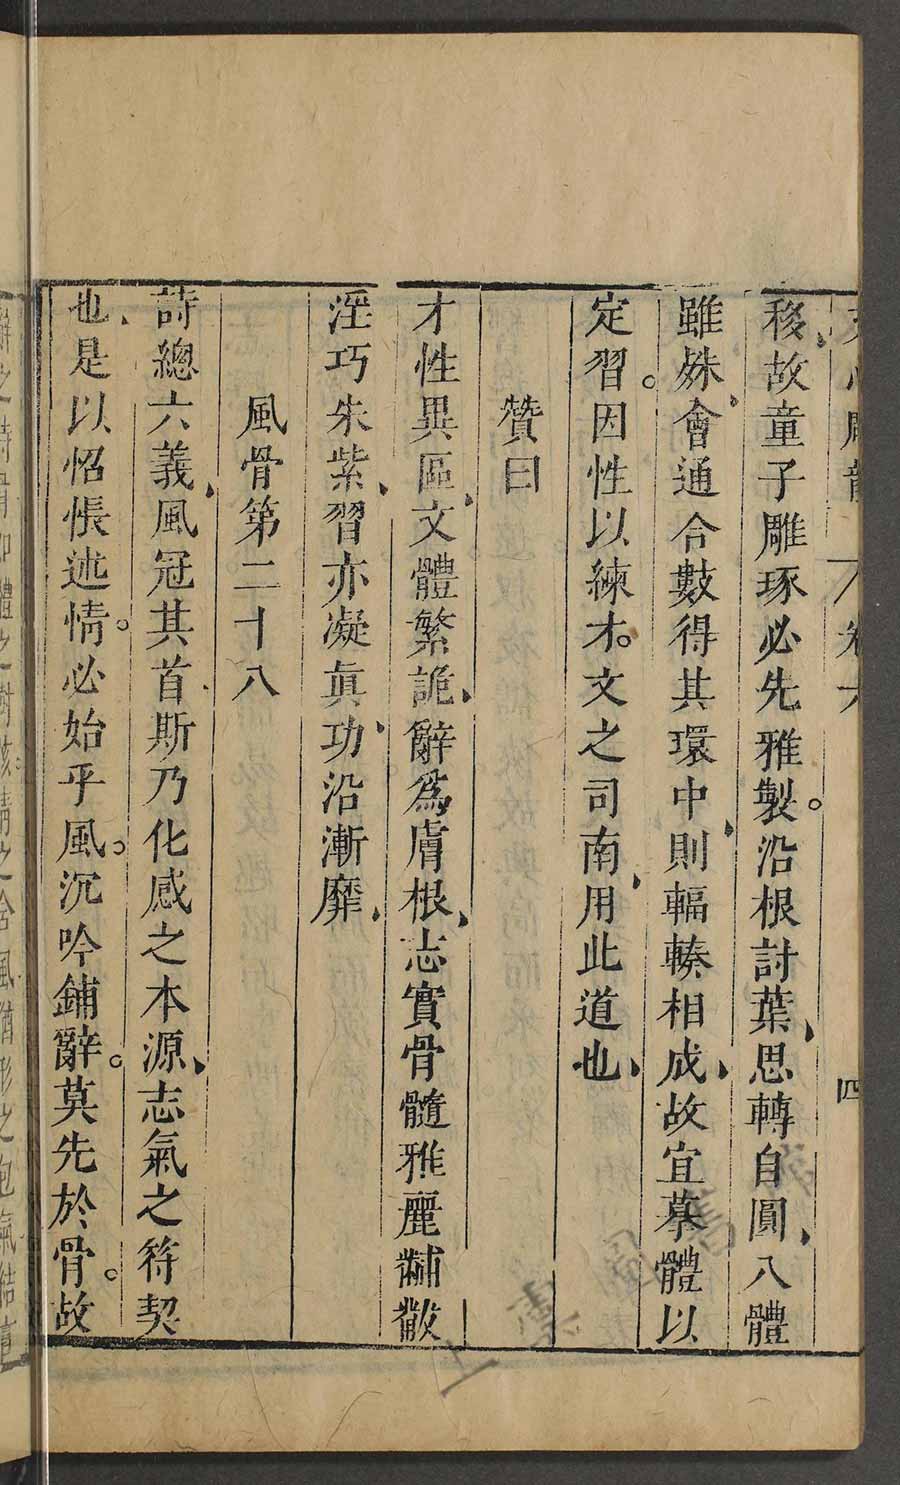 文心雕龍 卷六 四
移故童子雕琢必先雅製。沿根討葉、思轉自圓、八體
雖殊、會通合數得其環中、則輻輳相成、故宜摹體以
定習。因性以練才。文之司南、用此道也、
贊曰
才性異區、文體繁詭、辭爲膚根、志實骨髓雅麗黼黻
淫巧朱紫、習亦凝眞、功沿漸靡、
風骨第二十八
詩總六義、風冠其首斯乃化感之本源、志氣之符契
也、是以怊悵述情。必始乎風。沉吟鋪辭。莫先於骨。故